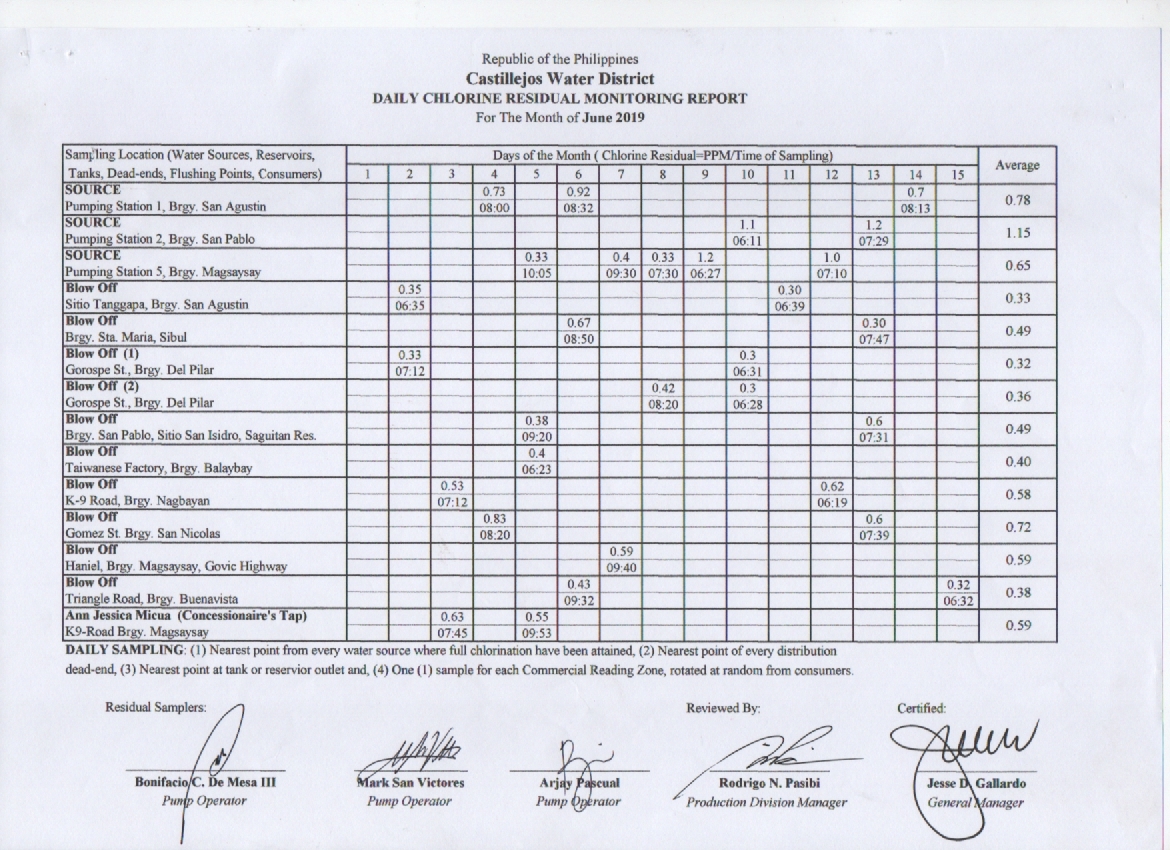 Republic of the Philippines
Castillejos Water District
DAILY CHLORINE RESIDUAL MONITORING REPORT
For The Month of June 2019
Sampling Location (Water Sources, Reservoirs, Tanks, Dead-ends, Flushing Points, Consumers) Days of the Month ( Chlorine Residual=PPM/Time of Sampling) Average
1 2 3 4 5 6 7 8 9 10 11 12 13 14 15
SOURCE 0.73 0.92 0.7
Pumping Station 1, Brgy. San Agustin 08:00 08:32 08:13 0.78
SOURCE 1.1 1.2
Pumping Station 2, Brgy. San Pablo 06:11 07:29 1.15
SOURCE 0.33 0.4 0.33 1.2 1.0
Pumping Station 5, Brgy. Magsaysay 10:05 09:30 07:30 06:27 07:10 0.65
Blow Off 0.35 0.30
Sitio Tanggapa, Brgy. San Agustin 06:35 06:39 0.33
Blow Off 0.67 0.30
Brgy. Sta. Maria, Sibul 08:50 07:47 0.49
Blow Off (1) 0.33 0.3
Gorospe St., Brgy. Del Pilar 07:12 06:31 0.32
Blow Off (2) 0.42 0.3
Gorospe St., Brgy. Del Pilar 08:20 06:28 0.36
Blow Off 0.38 0.6
Brgy. San Pablo, Sitio San Isidro, Saguitan Res. 09:20 07:31 0.49
Blow Off 0.4
Taiwanese Factory, Brgy. Balaybay 06:23 0.40
Blow Off 0.53 0.62
K-9 Road, Brgy. Nagbayan 07:12 06:19 0.58
Blow Off 0.83 0.6
Gomez St. Brgy. San Nicolas 08:20 07:39 0.72
Blow Off 0.59
Haniel, Brgy. Magsaysay, Govic Highway 09:40 0.59
Blow Off 0.43 0.32
Triangle Road, Brgy. Buenavista 09:32 06:32 0.38
Ann Jessica Micua (Concessionaire's Tap) 0.63 0.55
K9-Road Brgy. Magsaysay 07:45 09:53 0.59
DAILY SAMPLING: (1) Nearest point from every water source where full chlorination have been attained, (2) Nearest point of every distribution
dead-end, (3) Nearest point at tank or reservior outlet and, (4) One (1) sample for each Commercial Reading Zone, rotated at random from consumers.
Residual Samplers: Reviewed By: Certified:
Bonifacio C. De Mesa III Mark San Victores Arjay Pascual Rodrigo N. Pasibi Jesse D. Gallardo
Pump Operator Pump Operator Pump Operator Production Division Manager General Manager